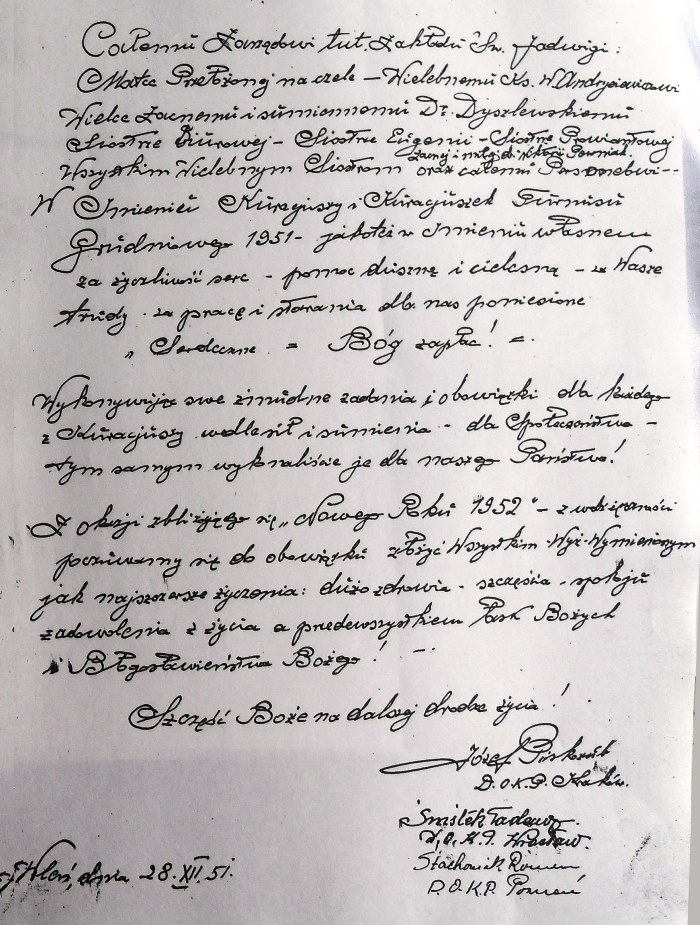 Całemu Zarządowi tut. Zakładu Św. Jadwigi:
Matce Przełożonej na czele – Wielebnemu Ks. W. Andrysiewiczowi
Wielce Zacnemu i sumiennemu Dr. Dyszlewskiemu
Siostrze Biurowej – Siostrze Eugenii – Siostrze Prowiantowej
zacnej i miłej dr.
Wszystkim Wielebnym Siostrom oraz całemu Personelowi --
W Imieniu Kuracjuszy i Kuracjuszek Turnusu
Grudniowego 1951 – jakoteż w Imieniu własnem
za życzliwość serc – pomoc duszną i cielesną – za Wasze
trudy – za pracę i starania dla nas poniesione
„ Serdeczne = Bóg zapłać! =.
Wykonywując swe żmudne zadania i obowiązki dla każdego
z Kuracjuszy wedle sił i sumienia – dla Społeczeństwa –
tym samym wykonaliście je dla naszego Państwa!
Z okazji zbliżającego się „Nowego Roku 1952" – z wdzięczności
poczuwamy się do obowiązku złożyć Wszystkim Wyż. Wymienionym
jak najszczersze życzenia: dużo zdrowia – szczęścia – spokoju
zadowolenia z życia a przedewszystkiem Łask Bożych
i Błogosławieństwa Bożego! –
Szczęść Boże na dalszej drodze życia!
Józef
D.O.K.P. Kraków.
Śmiłek Tadeusz.
D.O.K.P. Wrocław.
Stachowiak Roman
D.O.K.P. Poznań
dnia 28.XII.51.